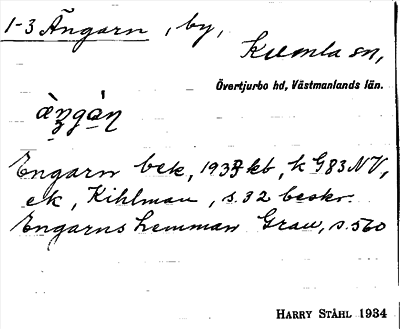 1-3 Ängarn, by,
Kumla sn,
Övertjurbo hd, Västmanlands län.
àŋgàṇ
Engarn bek, 1937 kb, k G83NV,
ek, Kihlman, s.32 beskr.
Engarns hemman Grau, s.560
HARRY STÅHL 1934